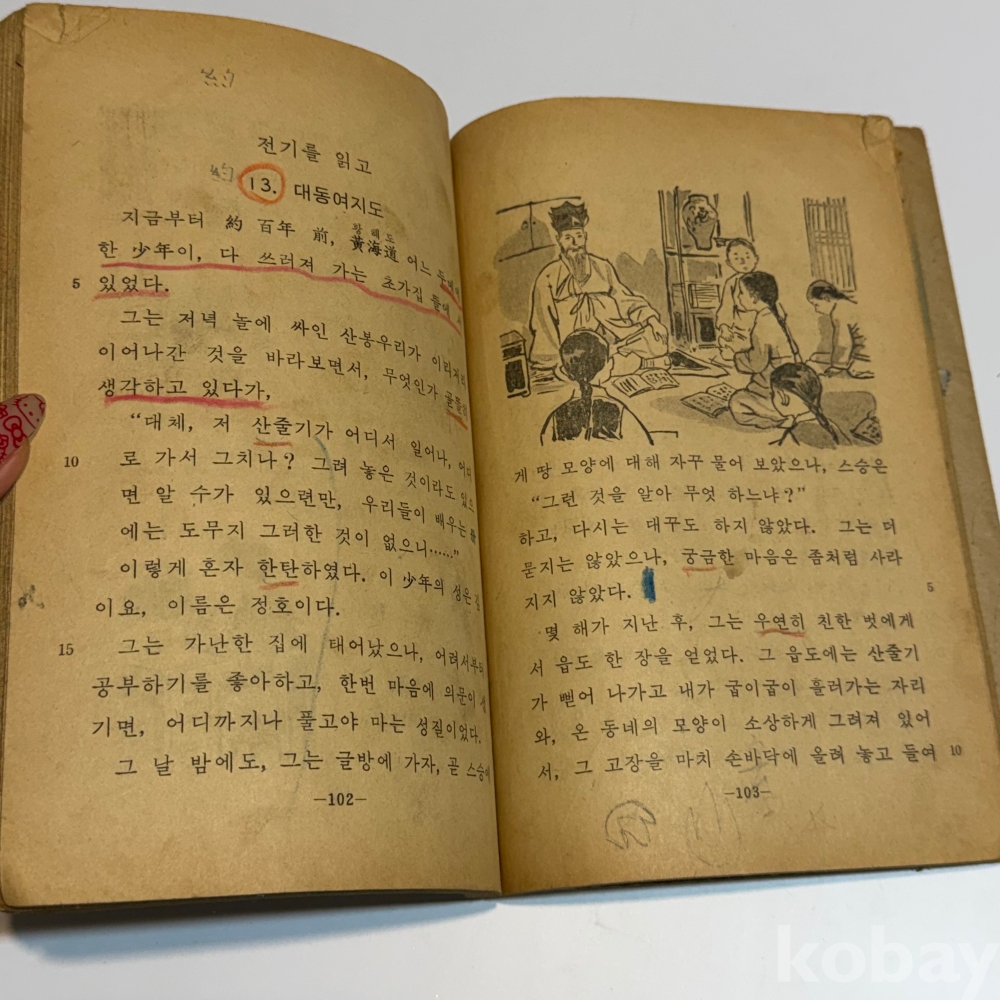 전기를 읽고
13. 대동여지도
지금부터 約 百年 前, 黃海道 어느
황해도
한 少年이, 다 쓰러져 가는 초가집 뜰에
있었다.
5
그는 저녁 놀에 싸인 산봉우리가 이리저리
이어나간 것을 바라보면서, 무엇인가 골똘히
생각하고 있다가,
“대체, 저 산줄기가 어디서 일어나, 어디
로 가서 그치나? 그려 놓은 것이라도 있으
10
면 알 수가 있으련만, 우리들이 배우는
에는 도무지 그러한 것이 없으니……”
이렇게 혼자 한탄하였다. 이 少年의 성은
이요, 이름은 정호이다.
그는 가난한 집에 태어났으나, 어려서부터
15
공부하기를 좋아하고, 한번 마음에 의문이 생
기면, 어디까지나 풀고야 마는 성질이었다.
그 날 밤에도, 그는 글방에 가자, 곧 스승에
—102—
게 땅 모양에 대해 자꾸 물어 보았으나, 스승은
“그런 것을 알아 무엇 하느냐?”
하고, 다시는 대꾸도 하지 않았다. 그는 더
묻지는 않았으나, 궁금한 마음은 좀처럼 사라
지지 않았다.
5
몇 해가 지난 후, 그는 우연히 친한 벗에게
서 읍도 한 장을 얻었다. 그 읍도에는 산줄기
가 뻗어 나가고 내가 굽이굽이 흘러가는 자리
와, 온 동네의 모양이 소상하게 그려져 있어
서, 그 고장을 마치 손바닥에 올려 놓고 들여
10
—103—
kobay